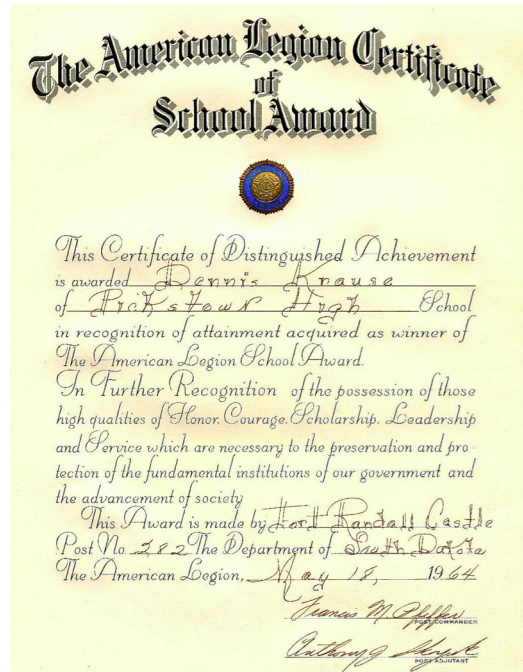 The American Legion Certificate
of
School Award
This Certificate of Distinguished Achievement
is awarded Dennis Krause
of Pickstown High School
in recognition of attainment acquired as winner of
The American Legion School Award.
In Further Recognition of the possession of those
high qualities of Honor, Courage, Scholarship, Leadership
and Service which are necessary to the preservation and pro-
tection of the fundamental institutions of our government and
the advancement of society
This Award is made by Fort Randall Castle
Post No. 282 The Department of South Dakota
The American Legion, May 18, 1964
Francis M. Pfeffer
POST COMMANDER
Anthony J.
POST ADJUTANT